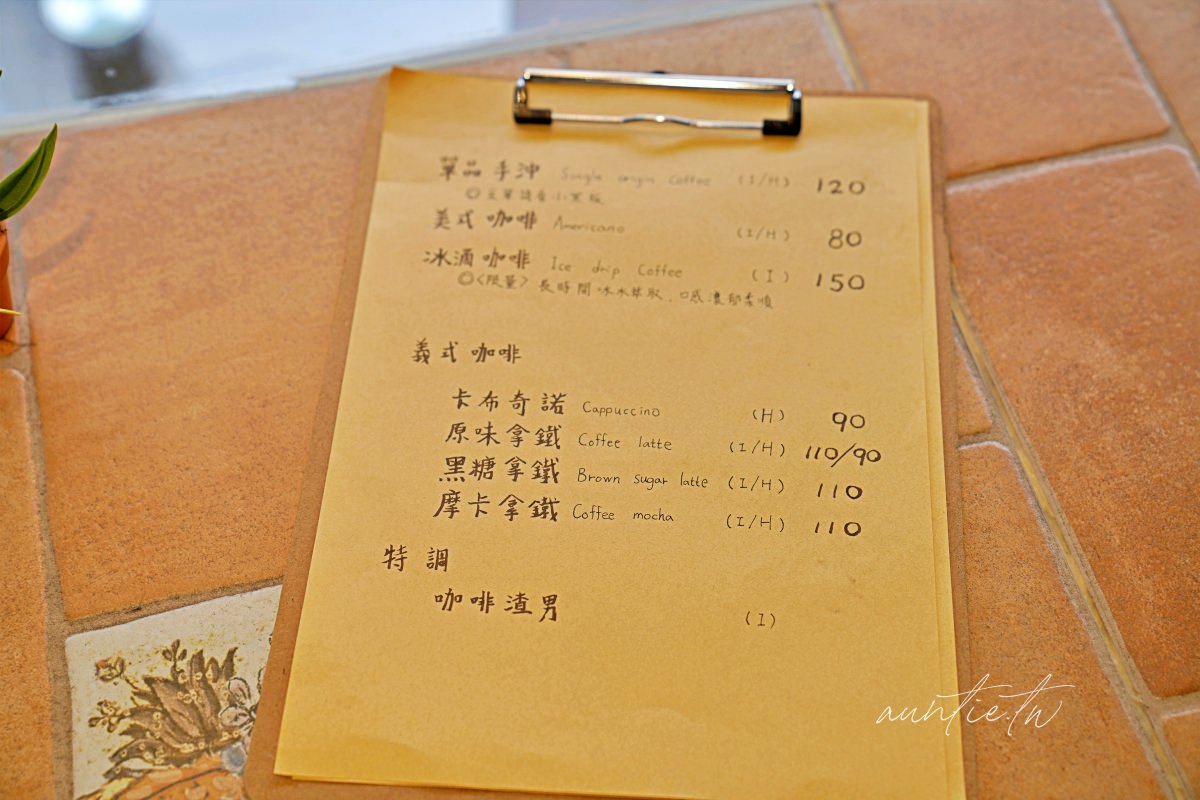 單品手沖 Single origin Coffee (I/H) 120
◎豆單請看小黑板
美式咖啡 Americano (I/H) 80
冰滴咖啡 Ice drip Coffee (I) 150
◎<限量> 長時間冰水萃取,口感濃郁柔順
義式咖啡
卡布奇諾 Cappuccino (H) 90
原味拿鐵 Coffee latte (I/H) 110/90
黑糖拿鐵 Brown sugar latte (I/H) 110
摩卡拿鐵 Coffee mocha (I/H) 110
特調
咖啡渣男 (I)
auntie.tw